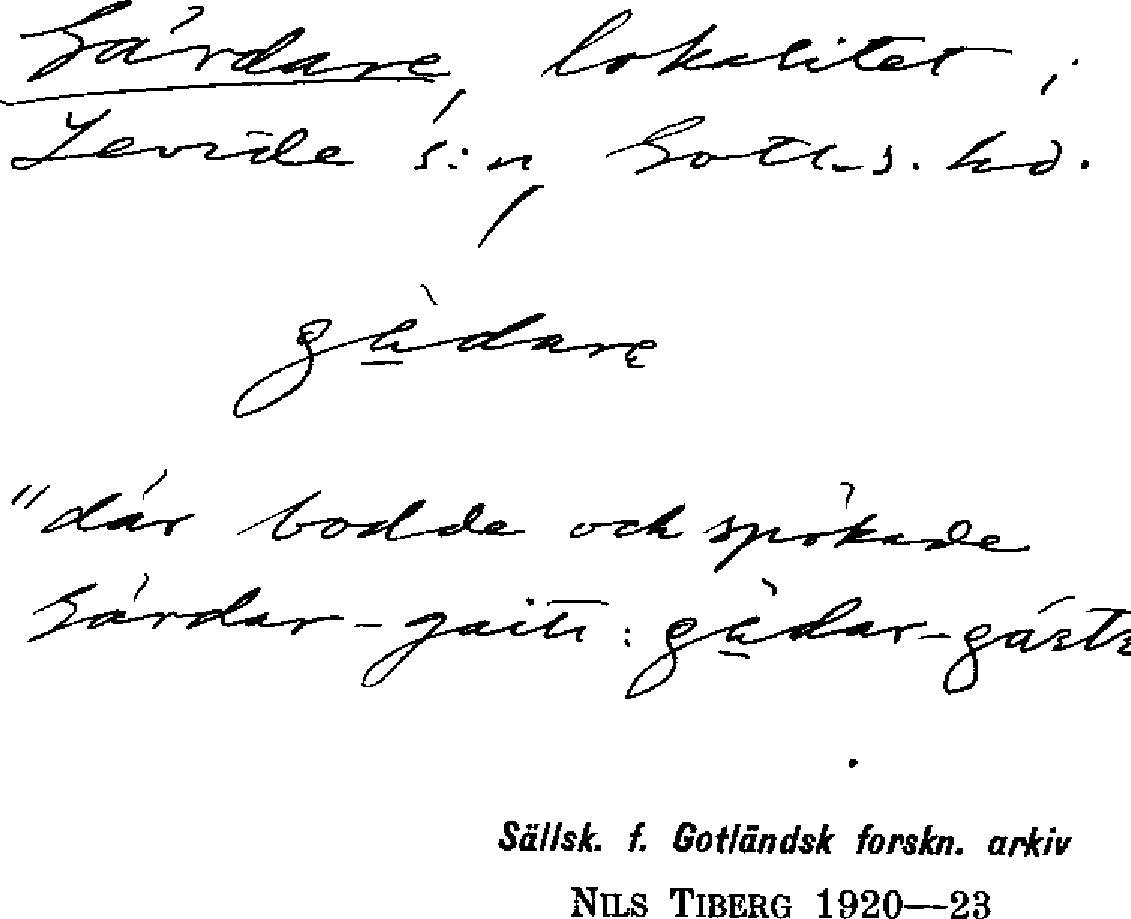 Gårdare, lokalitet i
Levide s:n, Gotl. s. hd.
gàdare
"där bodde och spökade
Gårdar-gaiti: gàdar-gásti
Sällsk. f. Gotländsk forskn. arkiv
NILS TIBERG 1920—23